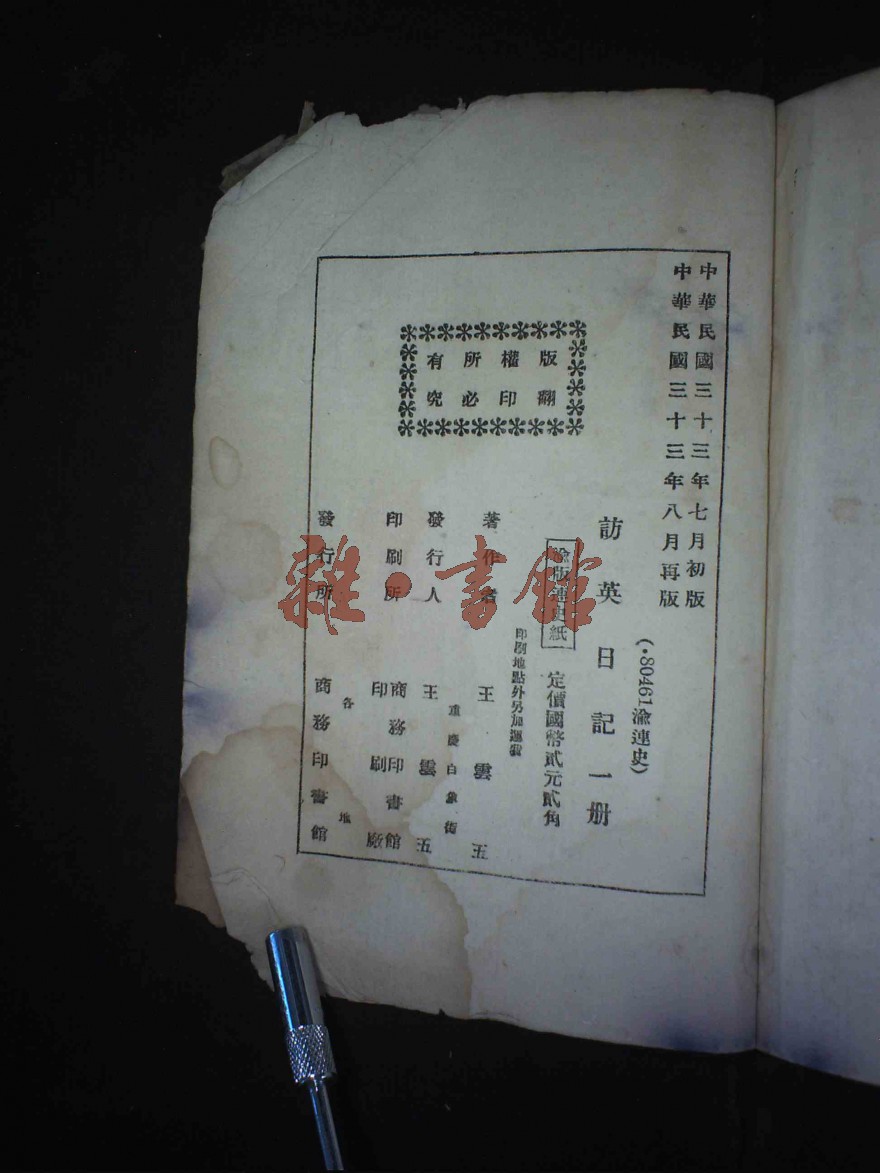 中華民國三十三年七月初版
中華民國三十三年八月再版
(·80461渝連史)
訪英日記一册
渝版連史紙
定價國幣貳元貳角
印刷地點外另加運費
著作者 王雲五
重慶白象街
發行人 王雲五
印刷所 商務印書館
印刷廠
發行所 各地
商務印書館
版權所有
翻印必究
雜·書館